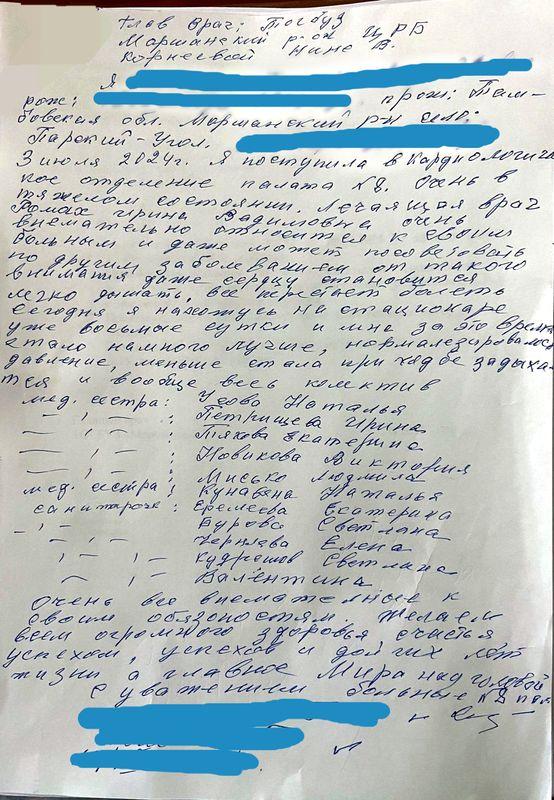 Глав врач: Тогбуз
Маршанский р-он ЦРБ
Корнеевой Нине В.
Я
рож: прож: Там-
бовская обл. Моршанский рн село:
Парский-Угол.
3 июля 2024г. Я поступила в Кардиологиче
кое отделение палата №8. Очень в
тяжелом состоянии. Лечаящая врач
Ромах Ирина Вадимовна очень
внемательно относится к своим
больным и даже может посоветовать
по другим заболеванием от такого
внимания даже сердцу становится
легко дышать, все перестает болеть
Сегодня я нахожусь на стационаре
уже восьмые сутки и мне за это время
стало намного лучше, нормализировалось
давление, меньше стала при ходбе задыха-
тся и вообще весь колектив
мед. сестра: Усова Наталья
— , — : Петрищева Ирина
— , — : Пяхова Екатерина
— , — : Новикова Виктория
— , — : Мисько Людмила
мед. сестра: Наталья
санитароче: Еремеева Екатерина
— , — Бурова Светлана
— Черняева Елена
— , — Кудряшов Светлана
— , — Валентина
Очень все внемательные к
своим обязоностям. Желаем
всем огромного здоровья счастья
успехом, успехов и долгих лет
жизни а главное Мира над головой
С уважением больные №8 пал